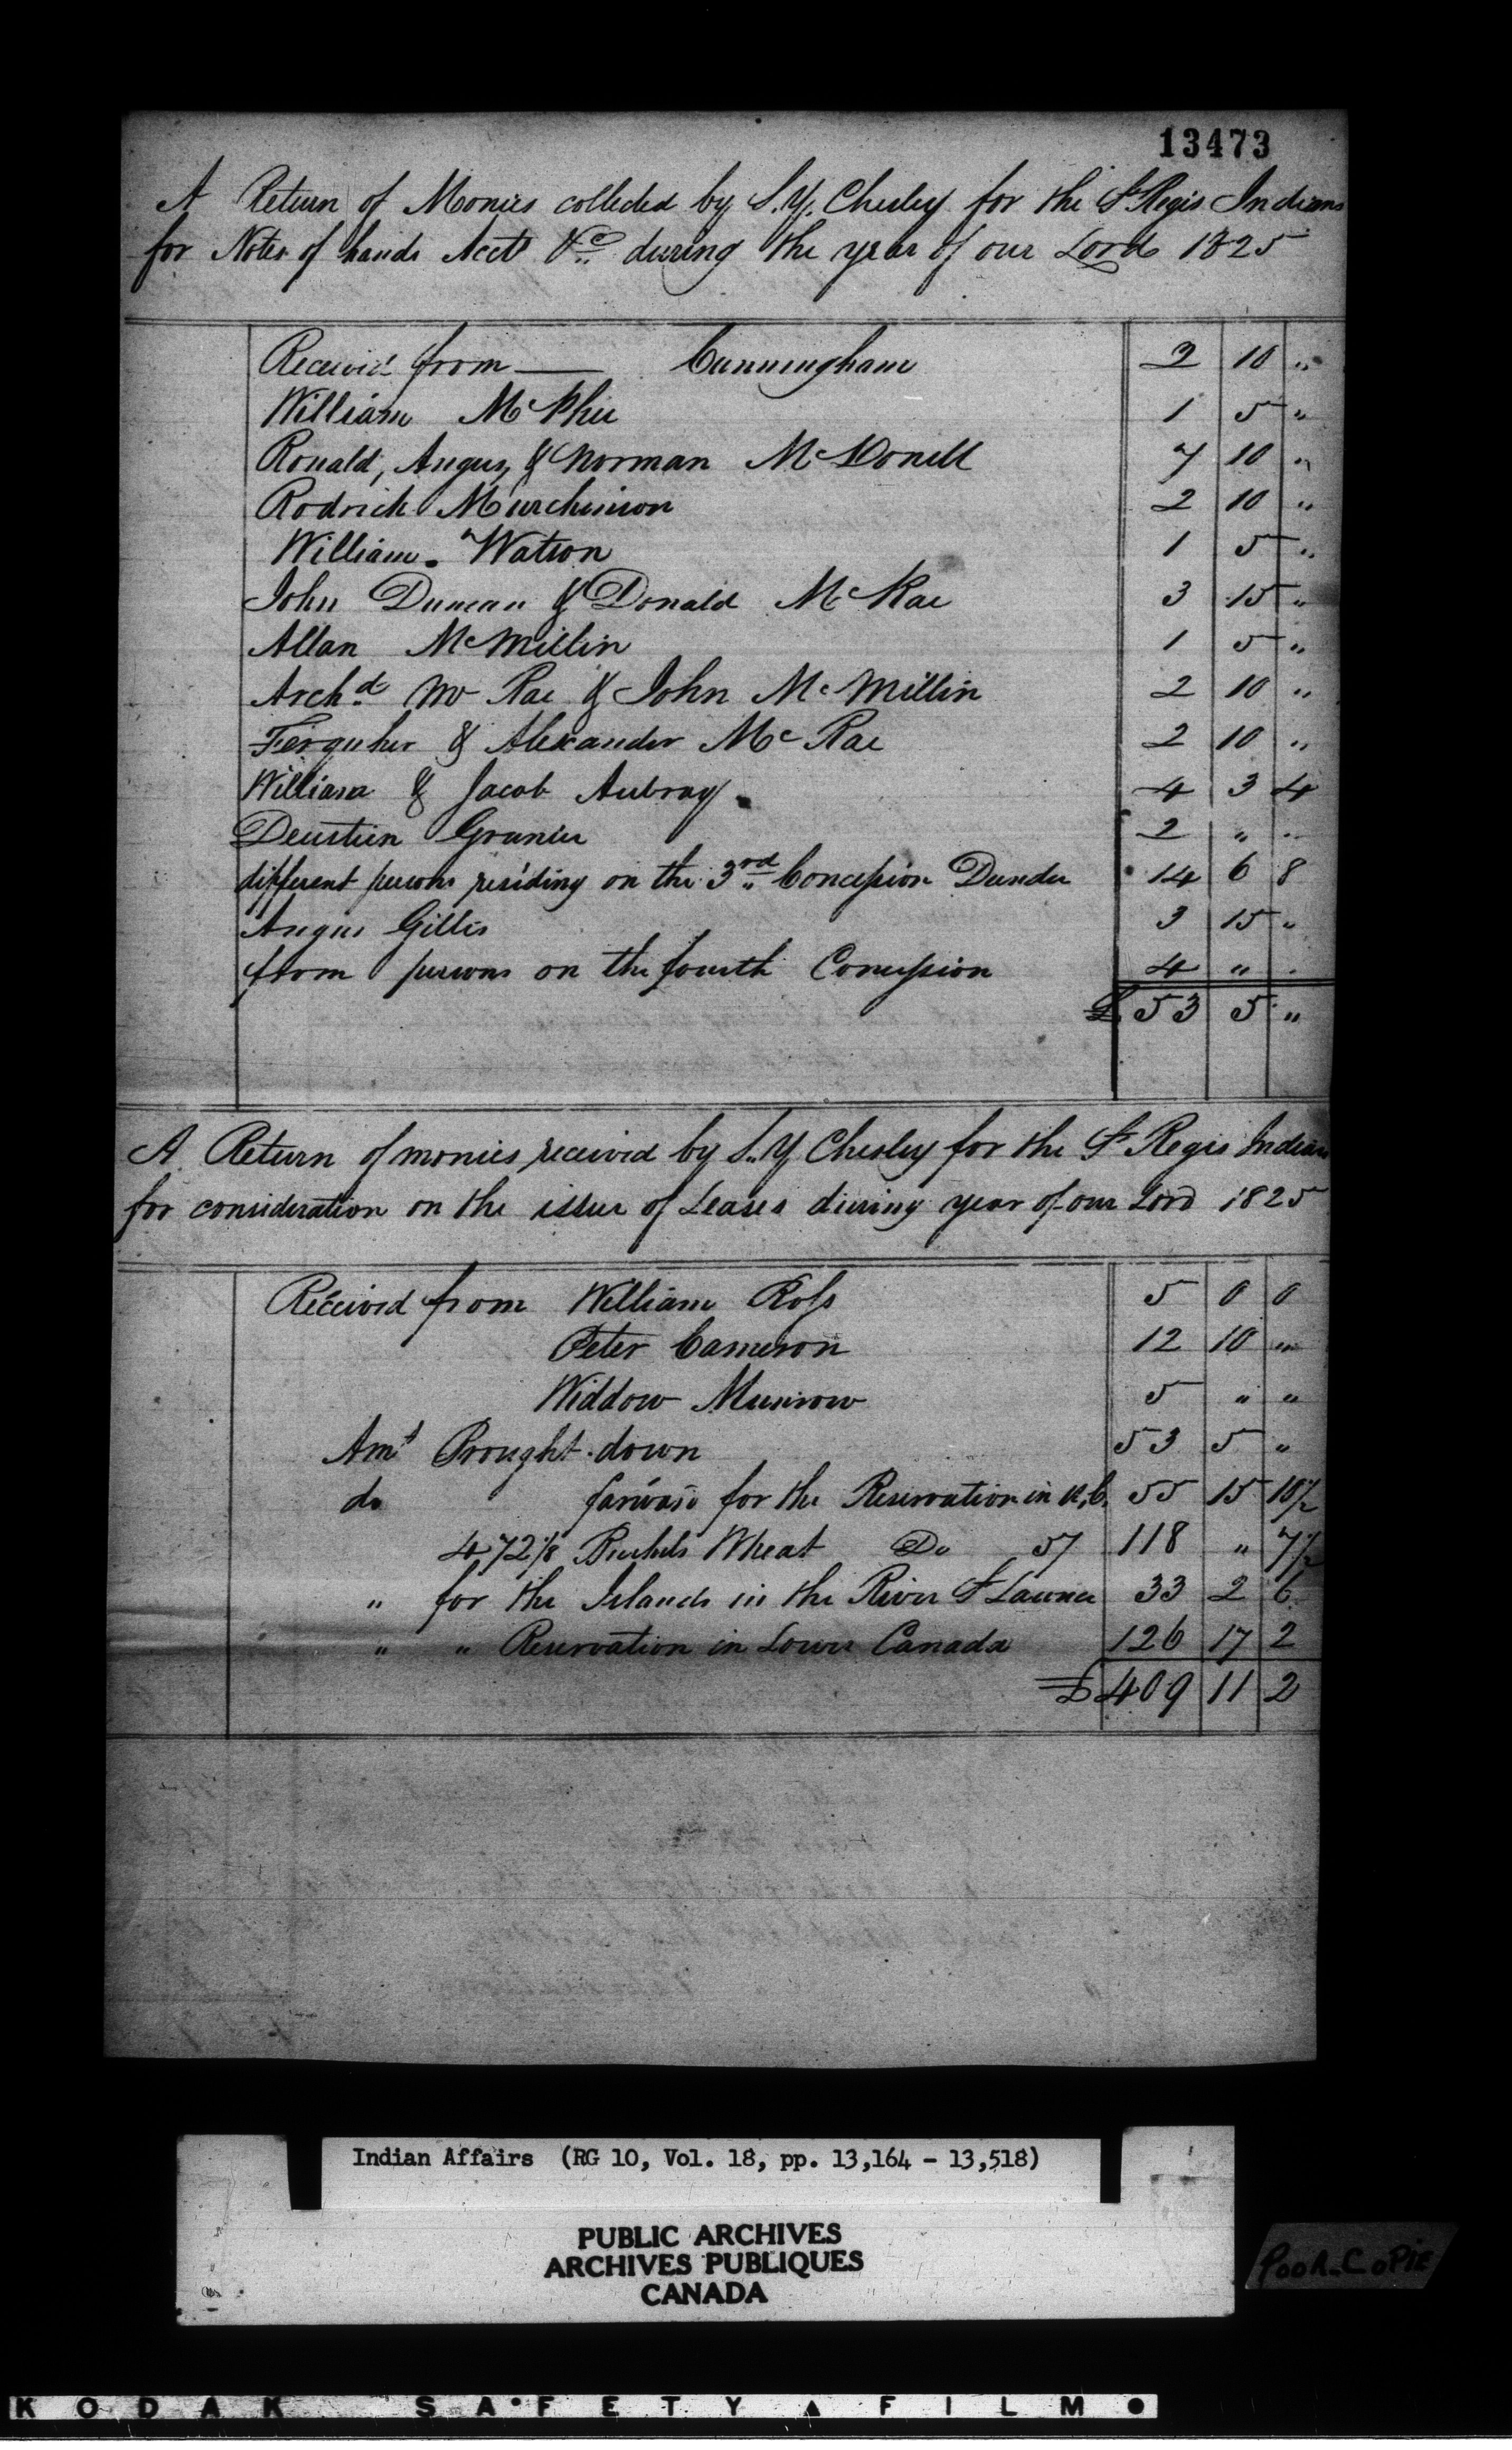 13473
A Return of Monies collected by S. Y. Chesley for the St Regis Indians
for Notes of hands Acct &c during the year of our Lord 1825
Received from — Cunningham 2 10 "
William McPhee 1 5 "
Ronald, Angus, & Norman McDonell 7 10 "
Rodrick Murchinson 2 10 "
William Watson 1 5 "
John Duncan & Donald McRae 3 15 "
Allan McMillin 1 5 "
Archd Mc Rae & John McMillin 2 10 "
Ferquher & Alexander Mc Rae 2 10 "
William & Jacob Aubray 4 3 4
2 " "
different persons residing on the 3rd Concession Dundee 14 6 8
Angus Gillis 3 15 "
from persons on the fourth Concession 4 " "
£ 53 5 "
A Return of monies received by S. Y Chesley for the St Regis Indians
for consideration on the issue of Leases during year of our Lord 1825
Received from William Ross 5 0 0
Peter Cameron 12 10 "
Widdow Munrow 5 " "
Amt Brought down 53 5 "
do for the Reservation in U,C. 55 15 10½
472⅛ Bushels Wheat Do 5/ 118 " 7½
" for the Islands in the River St Lawrence 33 2 6
" " Reservation in Lower Canada 126 17 2
£ 409 11 2
Indian Affairs (RG 10, Vol. 18, pp. 13,164 - 13,518)
PUBLIC ARCHIVES
ARCHIVES PUBLIQUES
CANADA
POOR COPIE
KODAK SAFETY FILM